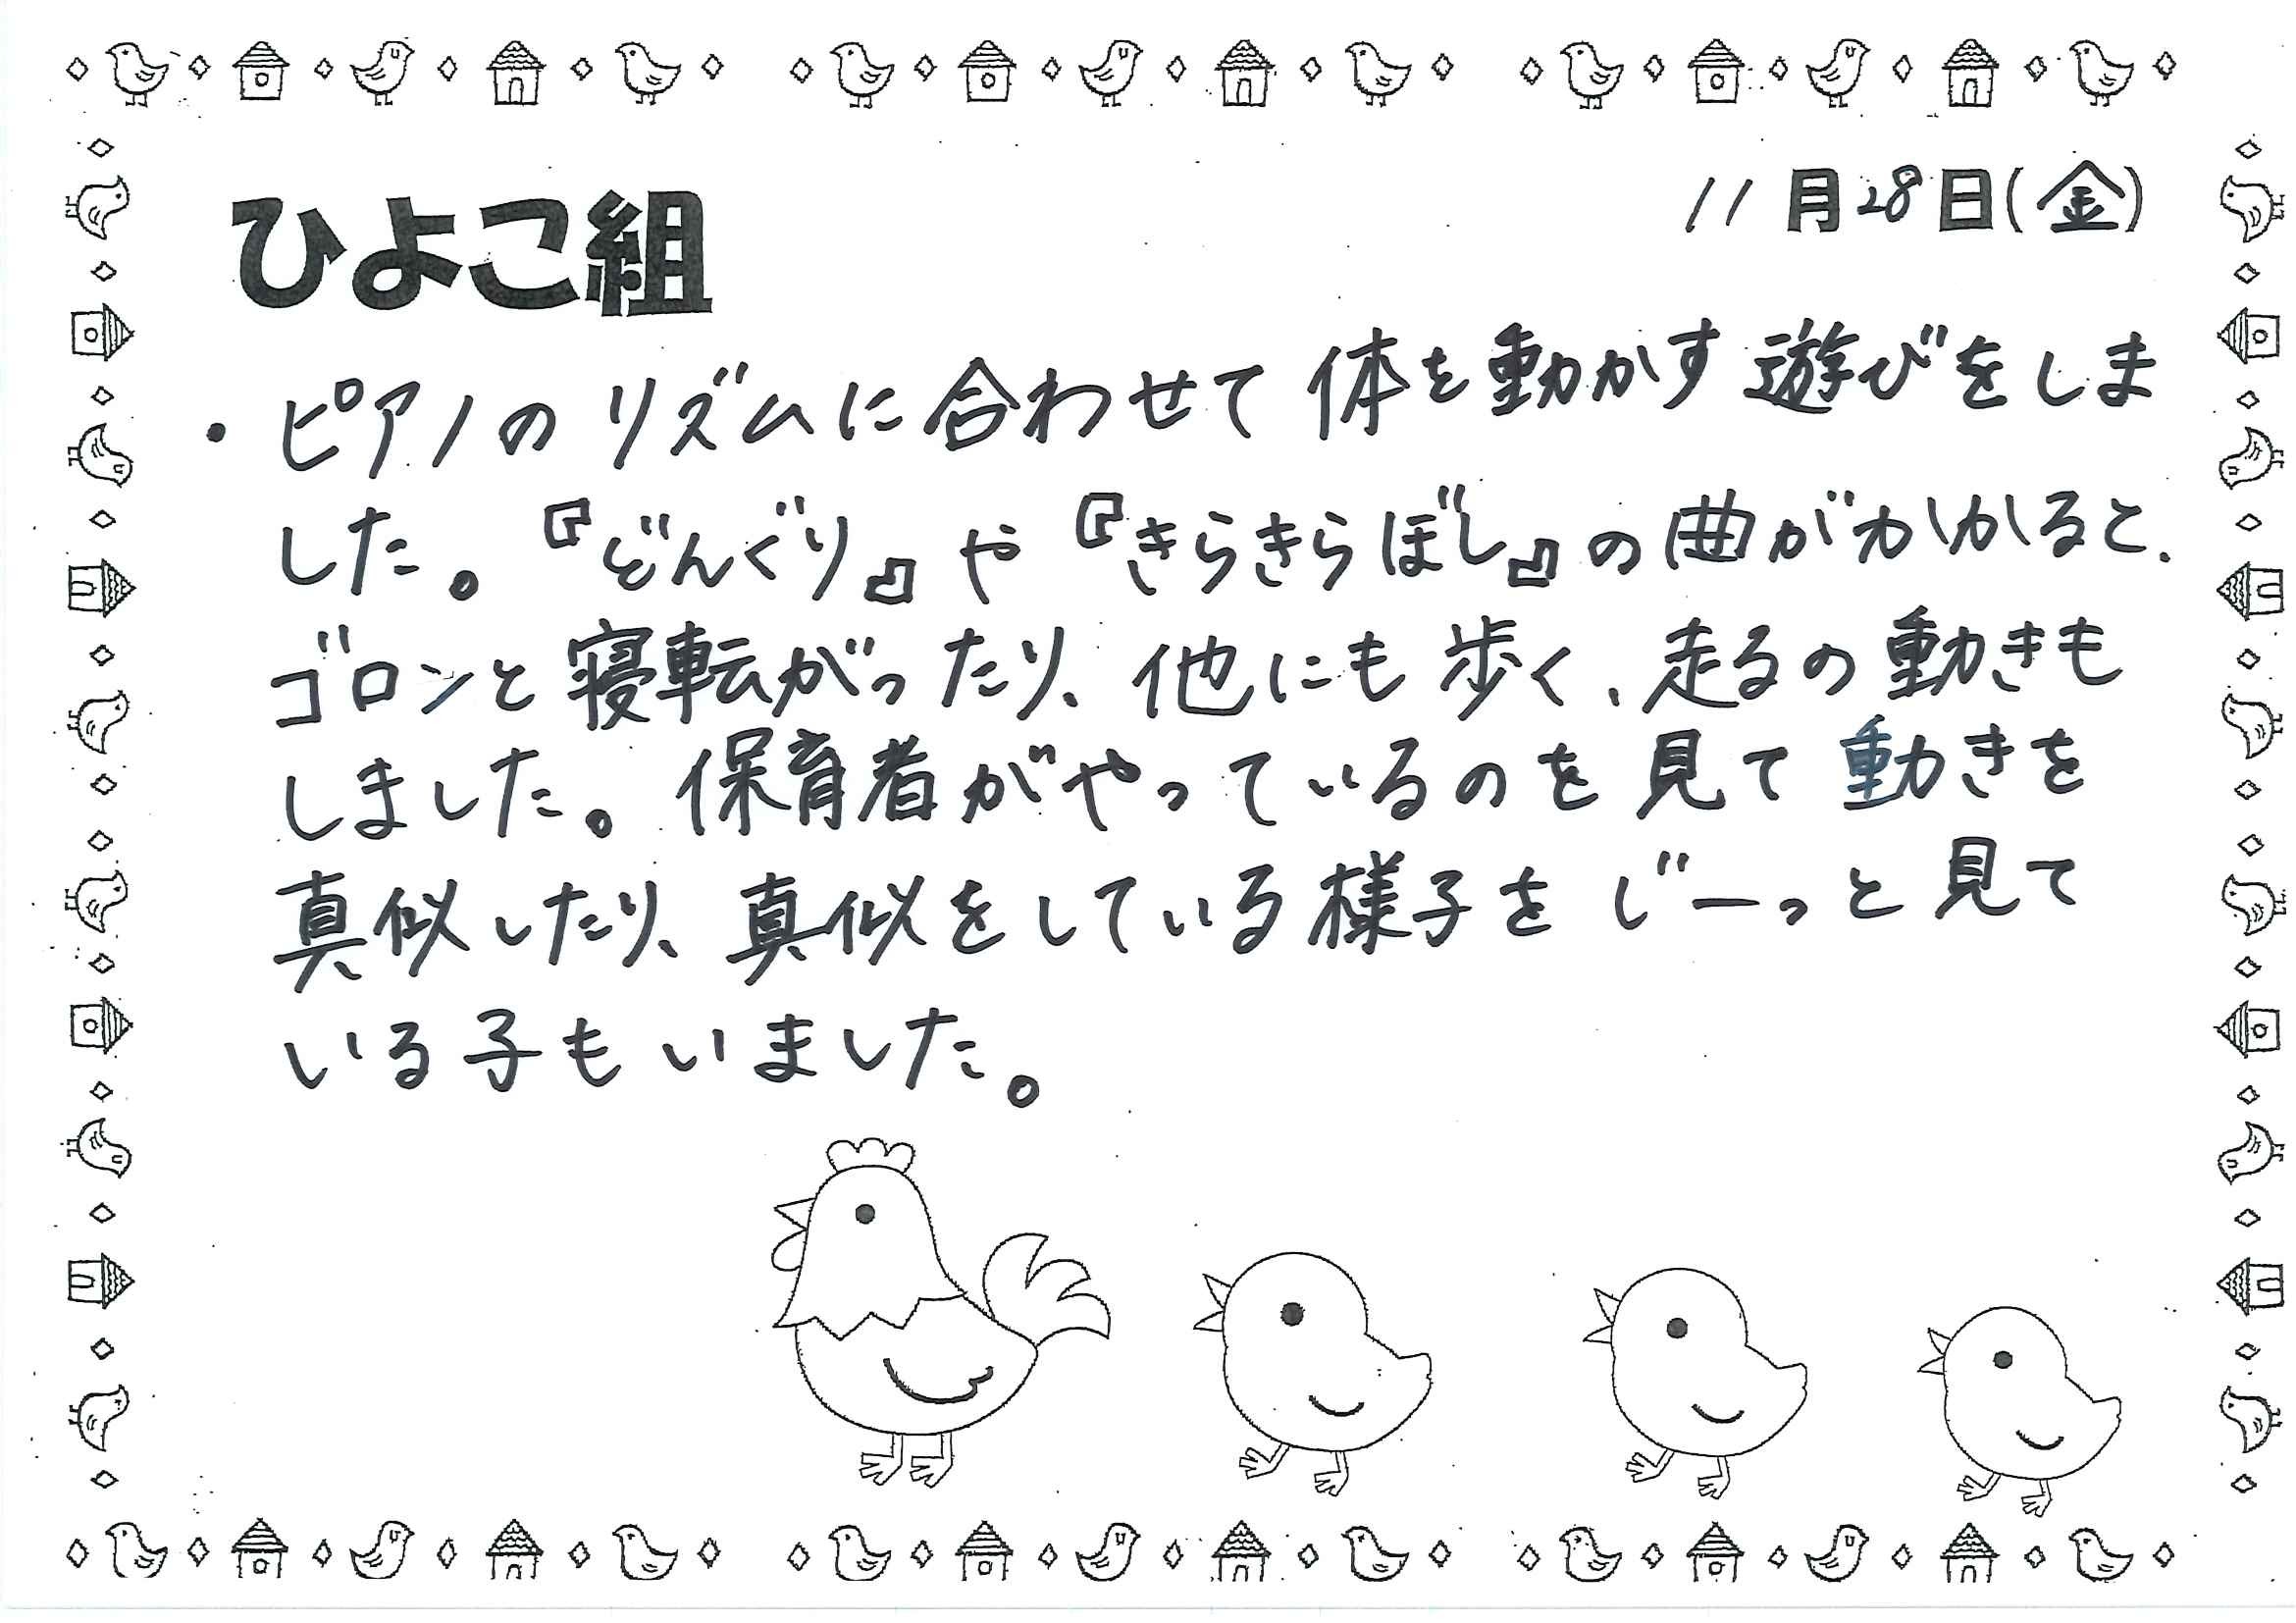 11月28日(金)
ひよこ組
・ピアノのリズムに合わせて体を動かす遊びをしま
した。『どんぐり』や『きらきらぼし』の曲がかかると、
ゴロンと寝転がったり、他にも歩く、走るの動きも
しました。保育者がやっているのを見て動きを
真似したり、真似をしている様子をじーっと見て
いる子もいました。